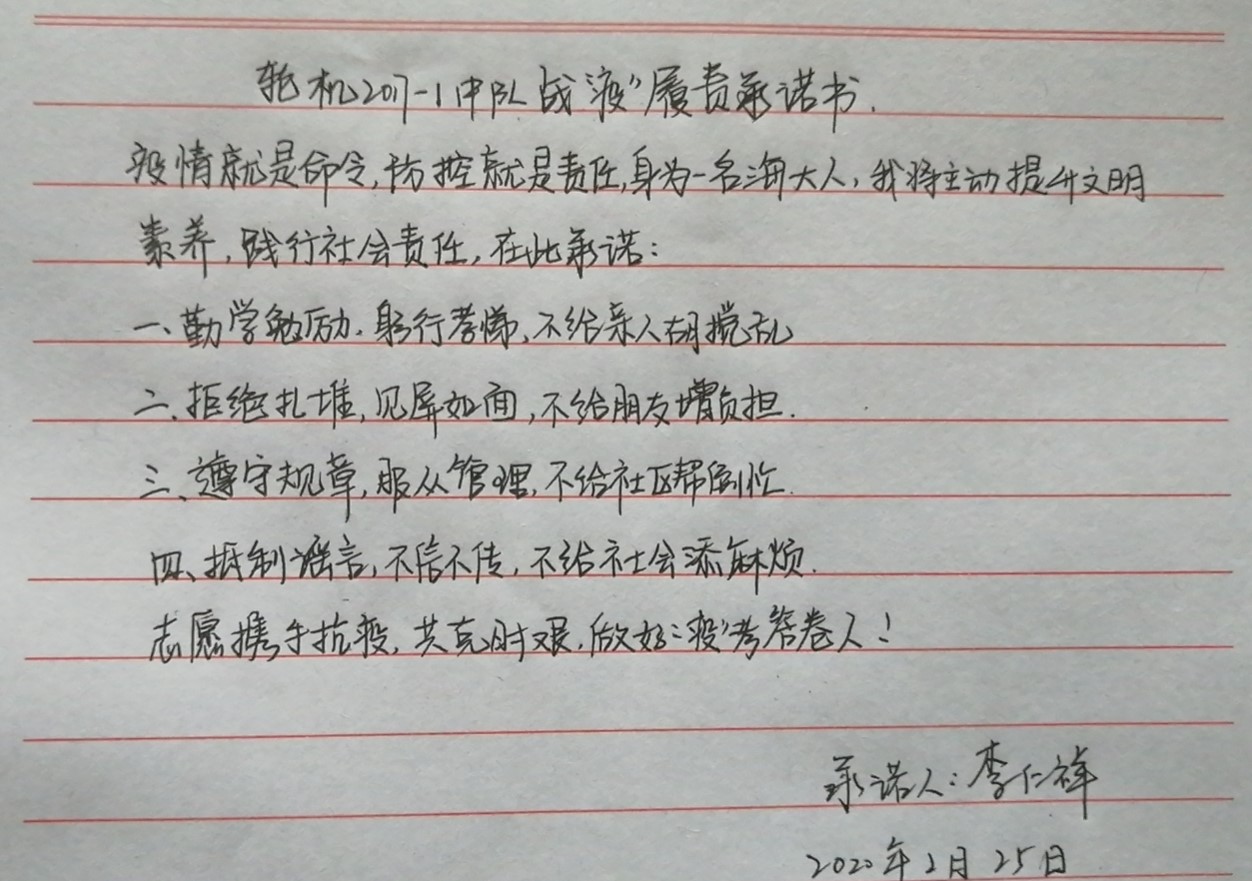 轮机2017-1中队战“疫”履责承诺书.
疫情就是命令,防控就是责任,身为一名海大人,我将主动提升文明
素养,践行社会责任,在此承诺:
一、勤学勉励.躬行孝悌,不给亲人胡搅乱
二、拒绝扎堆,见屏如面,不给朋友增负担.
三、遵守规章,服从管理,不给社区帮倒忙.
四、抵制谣言,不信不传,不给社会添麻烦.
志愿携手抗疫,共克时艰,做好“疫”考答卷人!
承诺人:李仁祥
2020年2月25日